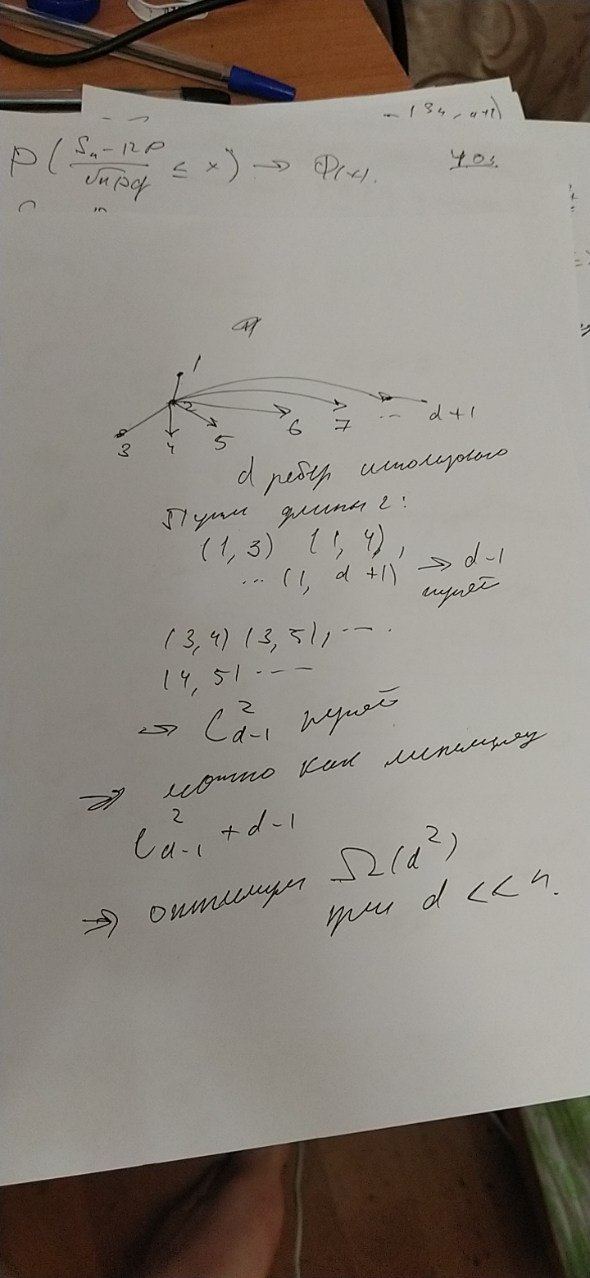 - (3n, n+1)
P( (Sn - np)/√npq ≤ x ) → Φ(x).
1
2
3 4 5 6 7 ... d+1
d ребер использовано
Пути длины 2:
(1, 3) (1, 4),
... (1, d+1) → d-1
путей
(3, 4) (3, 5), ...
(4, 5) ...
→ C²d-1 путей
⇒ можно как минимум
C²d-1 + d-1
⇒ оптимум Ω(d²)
при d << n.